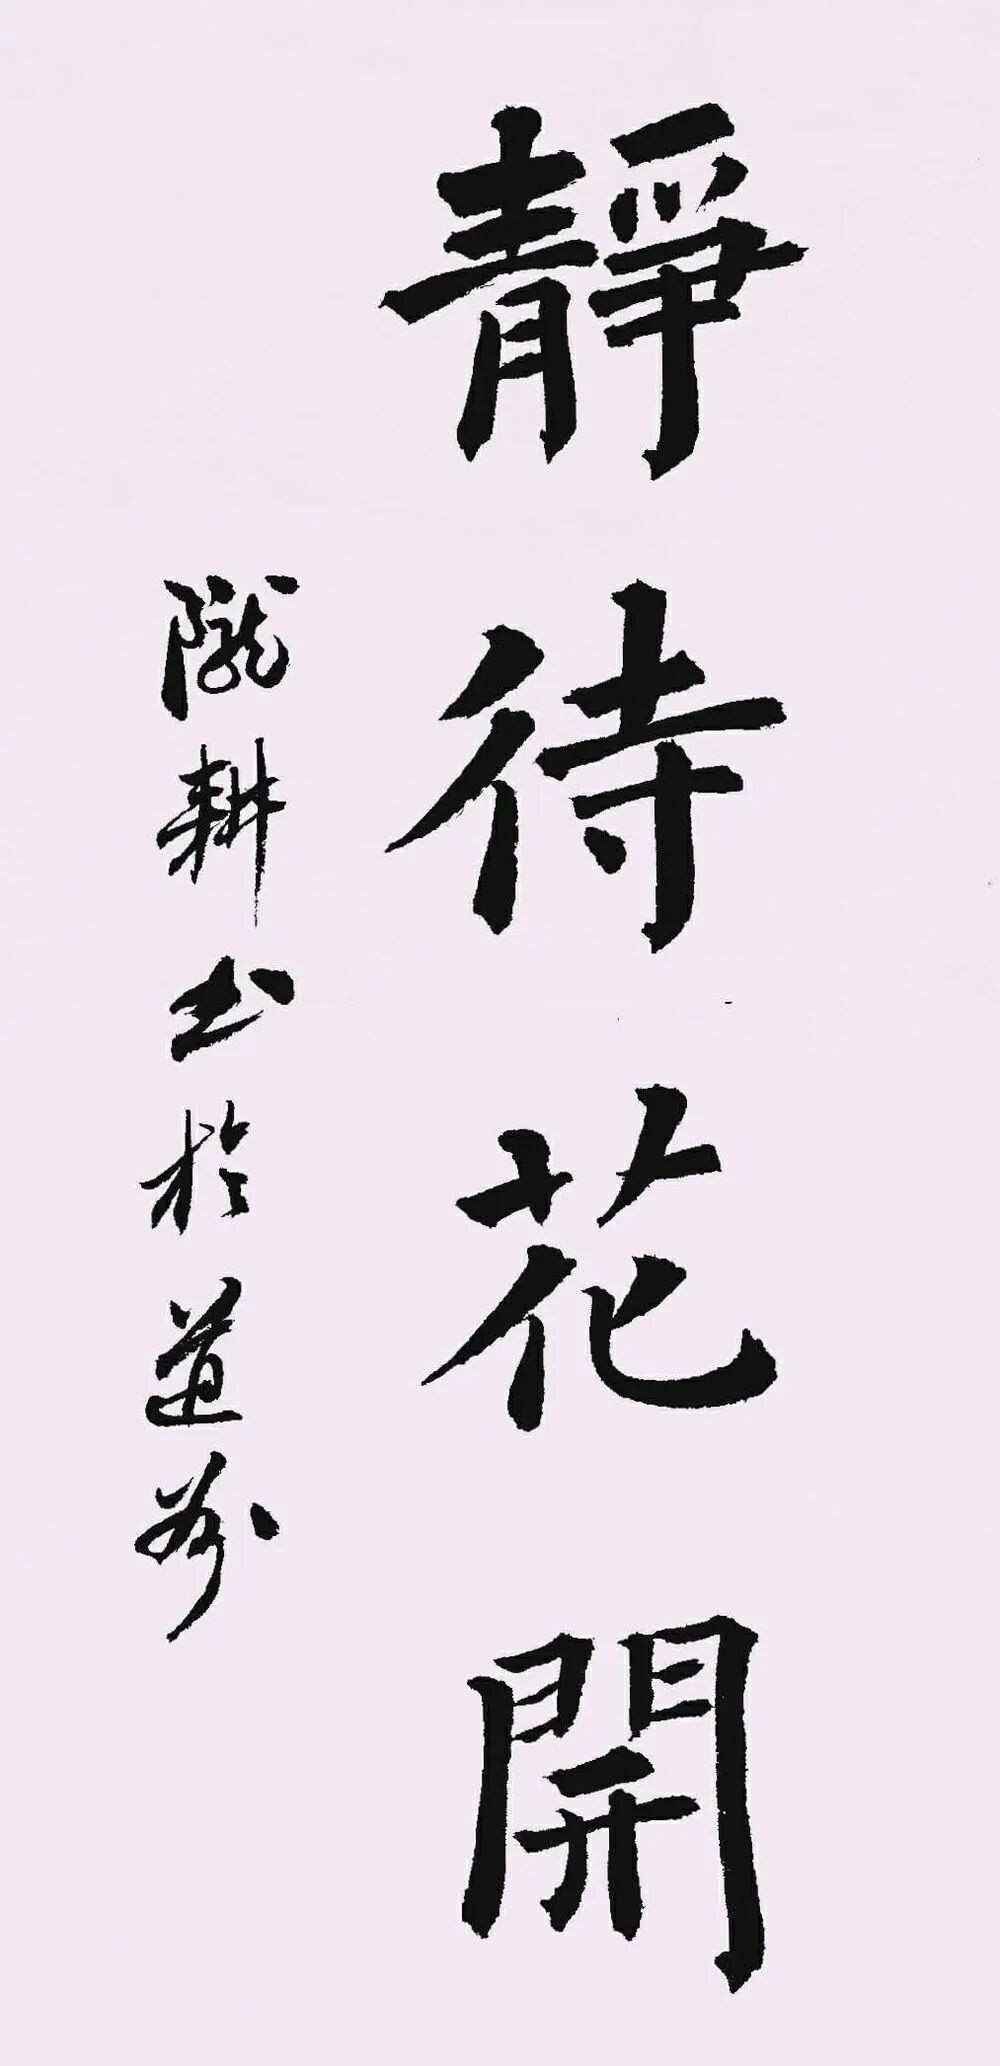 靜待花開
隴耕書於道州